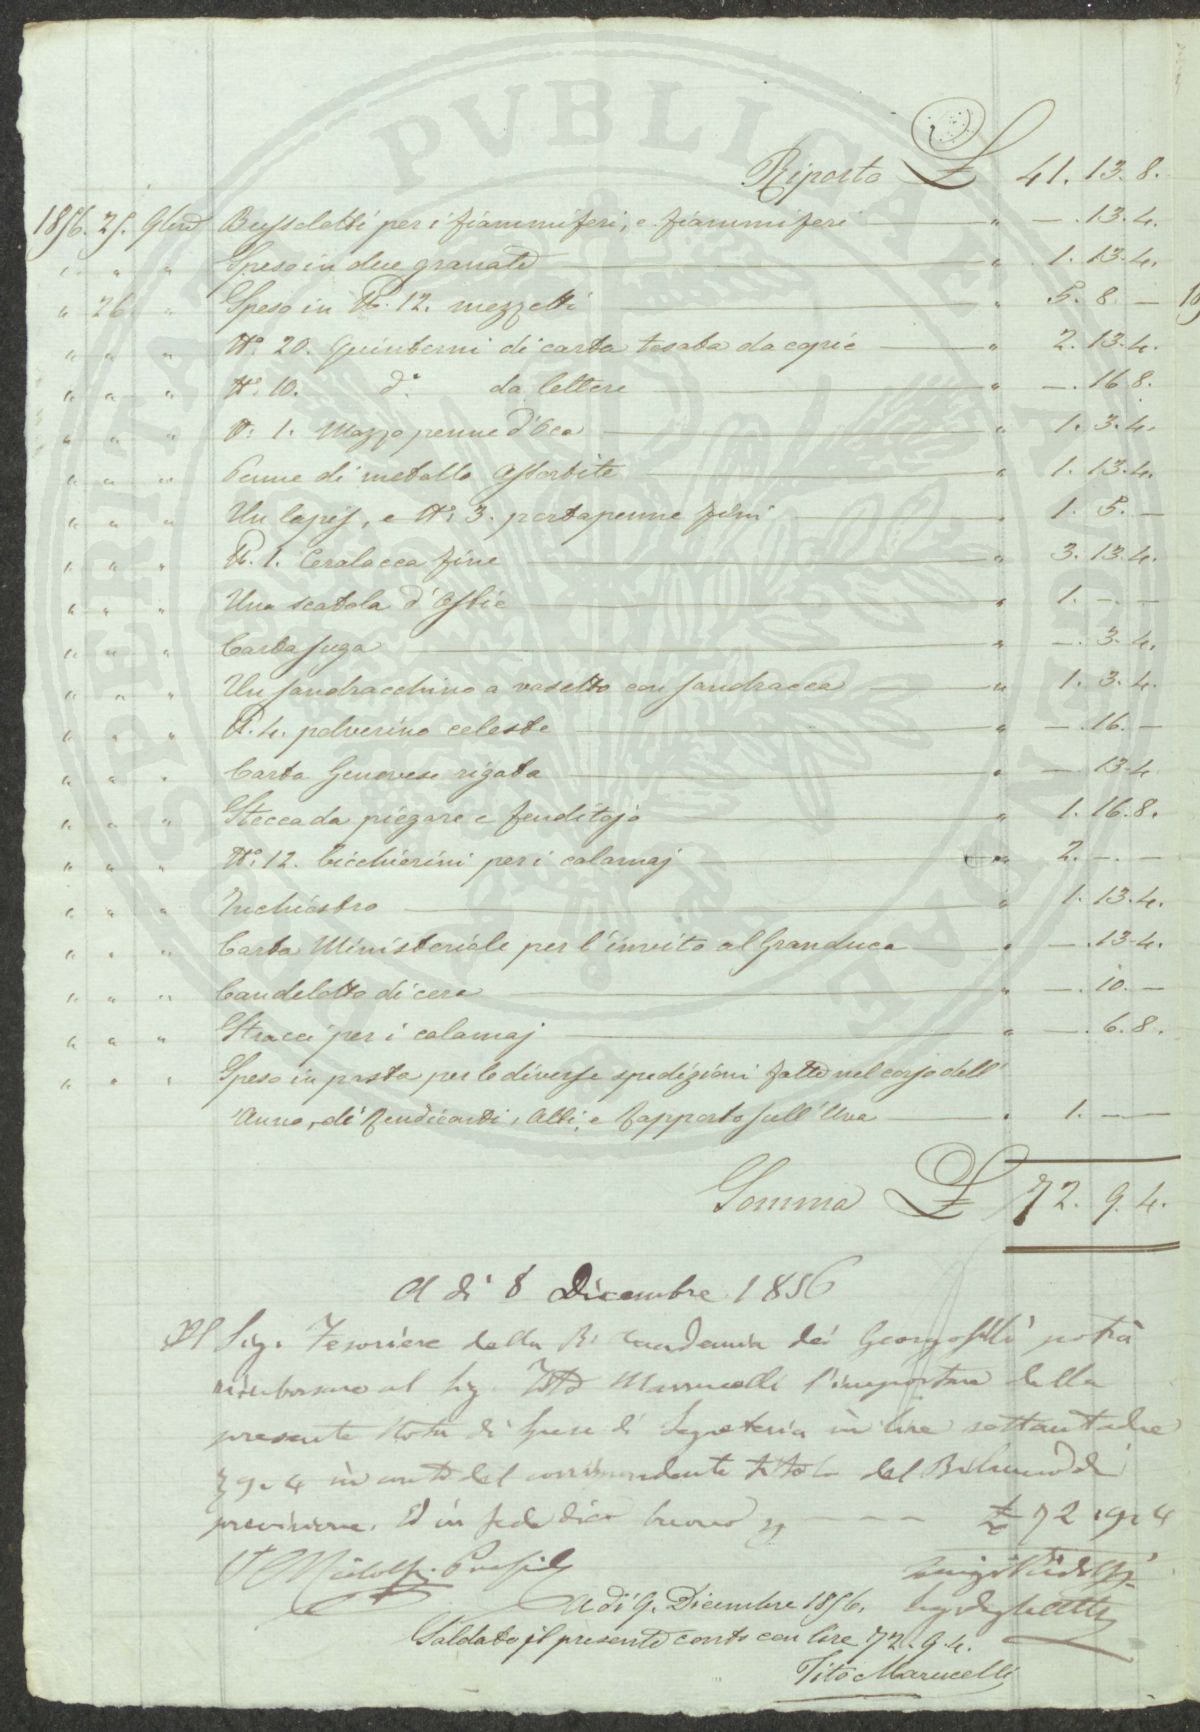 Riporto £ 41. 13. 8.
1856. 25. 9bre Bussolotti per i fiammiferi, e fiammiferi " —. 13. 4.
" " " Speso in due granate " 1. 13. 4.
" 26. " Speso in N. 12. mezzetti " 5. 8. —
" " " N.º 20. Quinterni di carta tosata da copie " 2. 13. 4.
" " " N.º 10. d.º da lettere " —. 16. 8.
" " " N.º 1. Mazzo penne d'Oca " 1. 3. 4.
" " " Penne di metallo assortite " 1. 13. 4.
" " " Un lapis, e N.º 3. portapenne fini " 1. 5. —
" " " 1. Ceralacca fine " 3. 13. 4.
" " " Una scatola d'Ostie " 1. —. —
" " " Carta suga " —. 3. 4.
" " " Un sandracchino a vasetto con sandracca " 1. 3. 4.
" " " 4. polverino celeste " —. 16. —
" " " Carta Genovese rigata " — 13. 4
" " " Stecca da piegare e fenditojo " 1. 16. 8.
" " " N.º 12. Bicchierini per i calamaj " 2. —. —
" " " Inchiostro " 1. 13. 4.
" " " Carta Ministeriale per l'invito al Granduca " —. 13. 4.
" " " Candelotto di cera " —. 10. —
" " " Stracci per i calamaj " —. 6. 8.
" " " Speso in posta per le diverse spedizioni fatte nel corso dell'
Anno, di Rendiconti, Atti, e Rapporto sull'Uva " 1. — —
Somma £ 72. 9. 4.
A dì 8 Dicembre 1856
Il Sig. Tesoriere della R. Accademia dei Georgofili potrà
rimborsare al Sig. Tito Marucelli l'importare della
presente Nota di spese di Segreteria in lire settantadue
9. 4 in conto del corrispondente titolo del Bilancio di
previsione. E in fede dico buono p — — — £ 72. 9. 4
Ridolfi Presid
Luigi Ridolfi
A dì 9. Dicembre 1856.
Saldato il presente conto con lire 72. 9. 4.
Tito Marucelli
PROSPERITATI PVBLICAE AVGENDAE